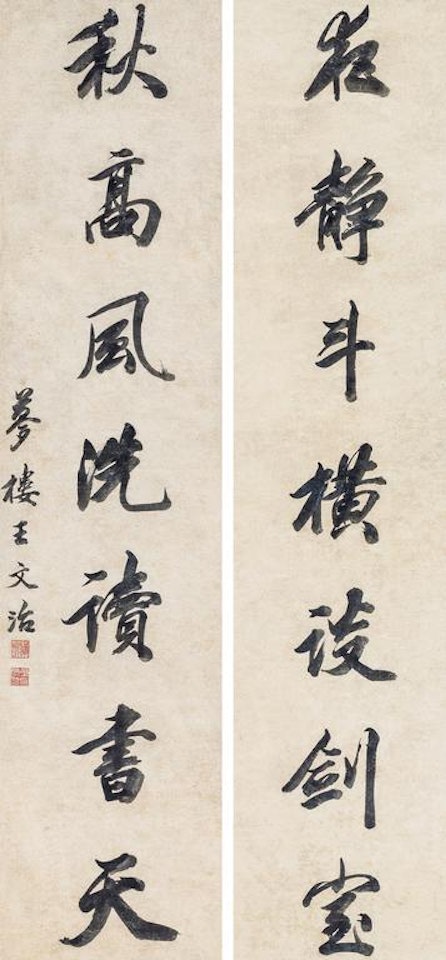 夜静斗横談劍室
秋高風洗讀書天
夢樓王文治